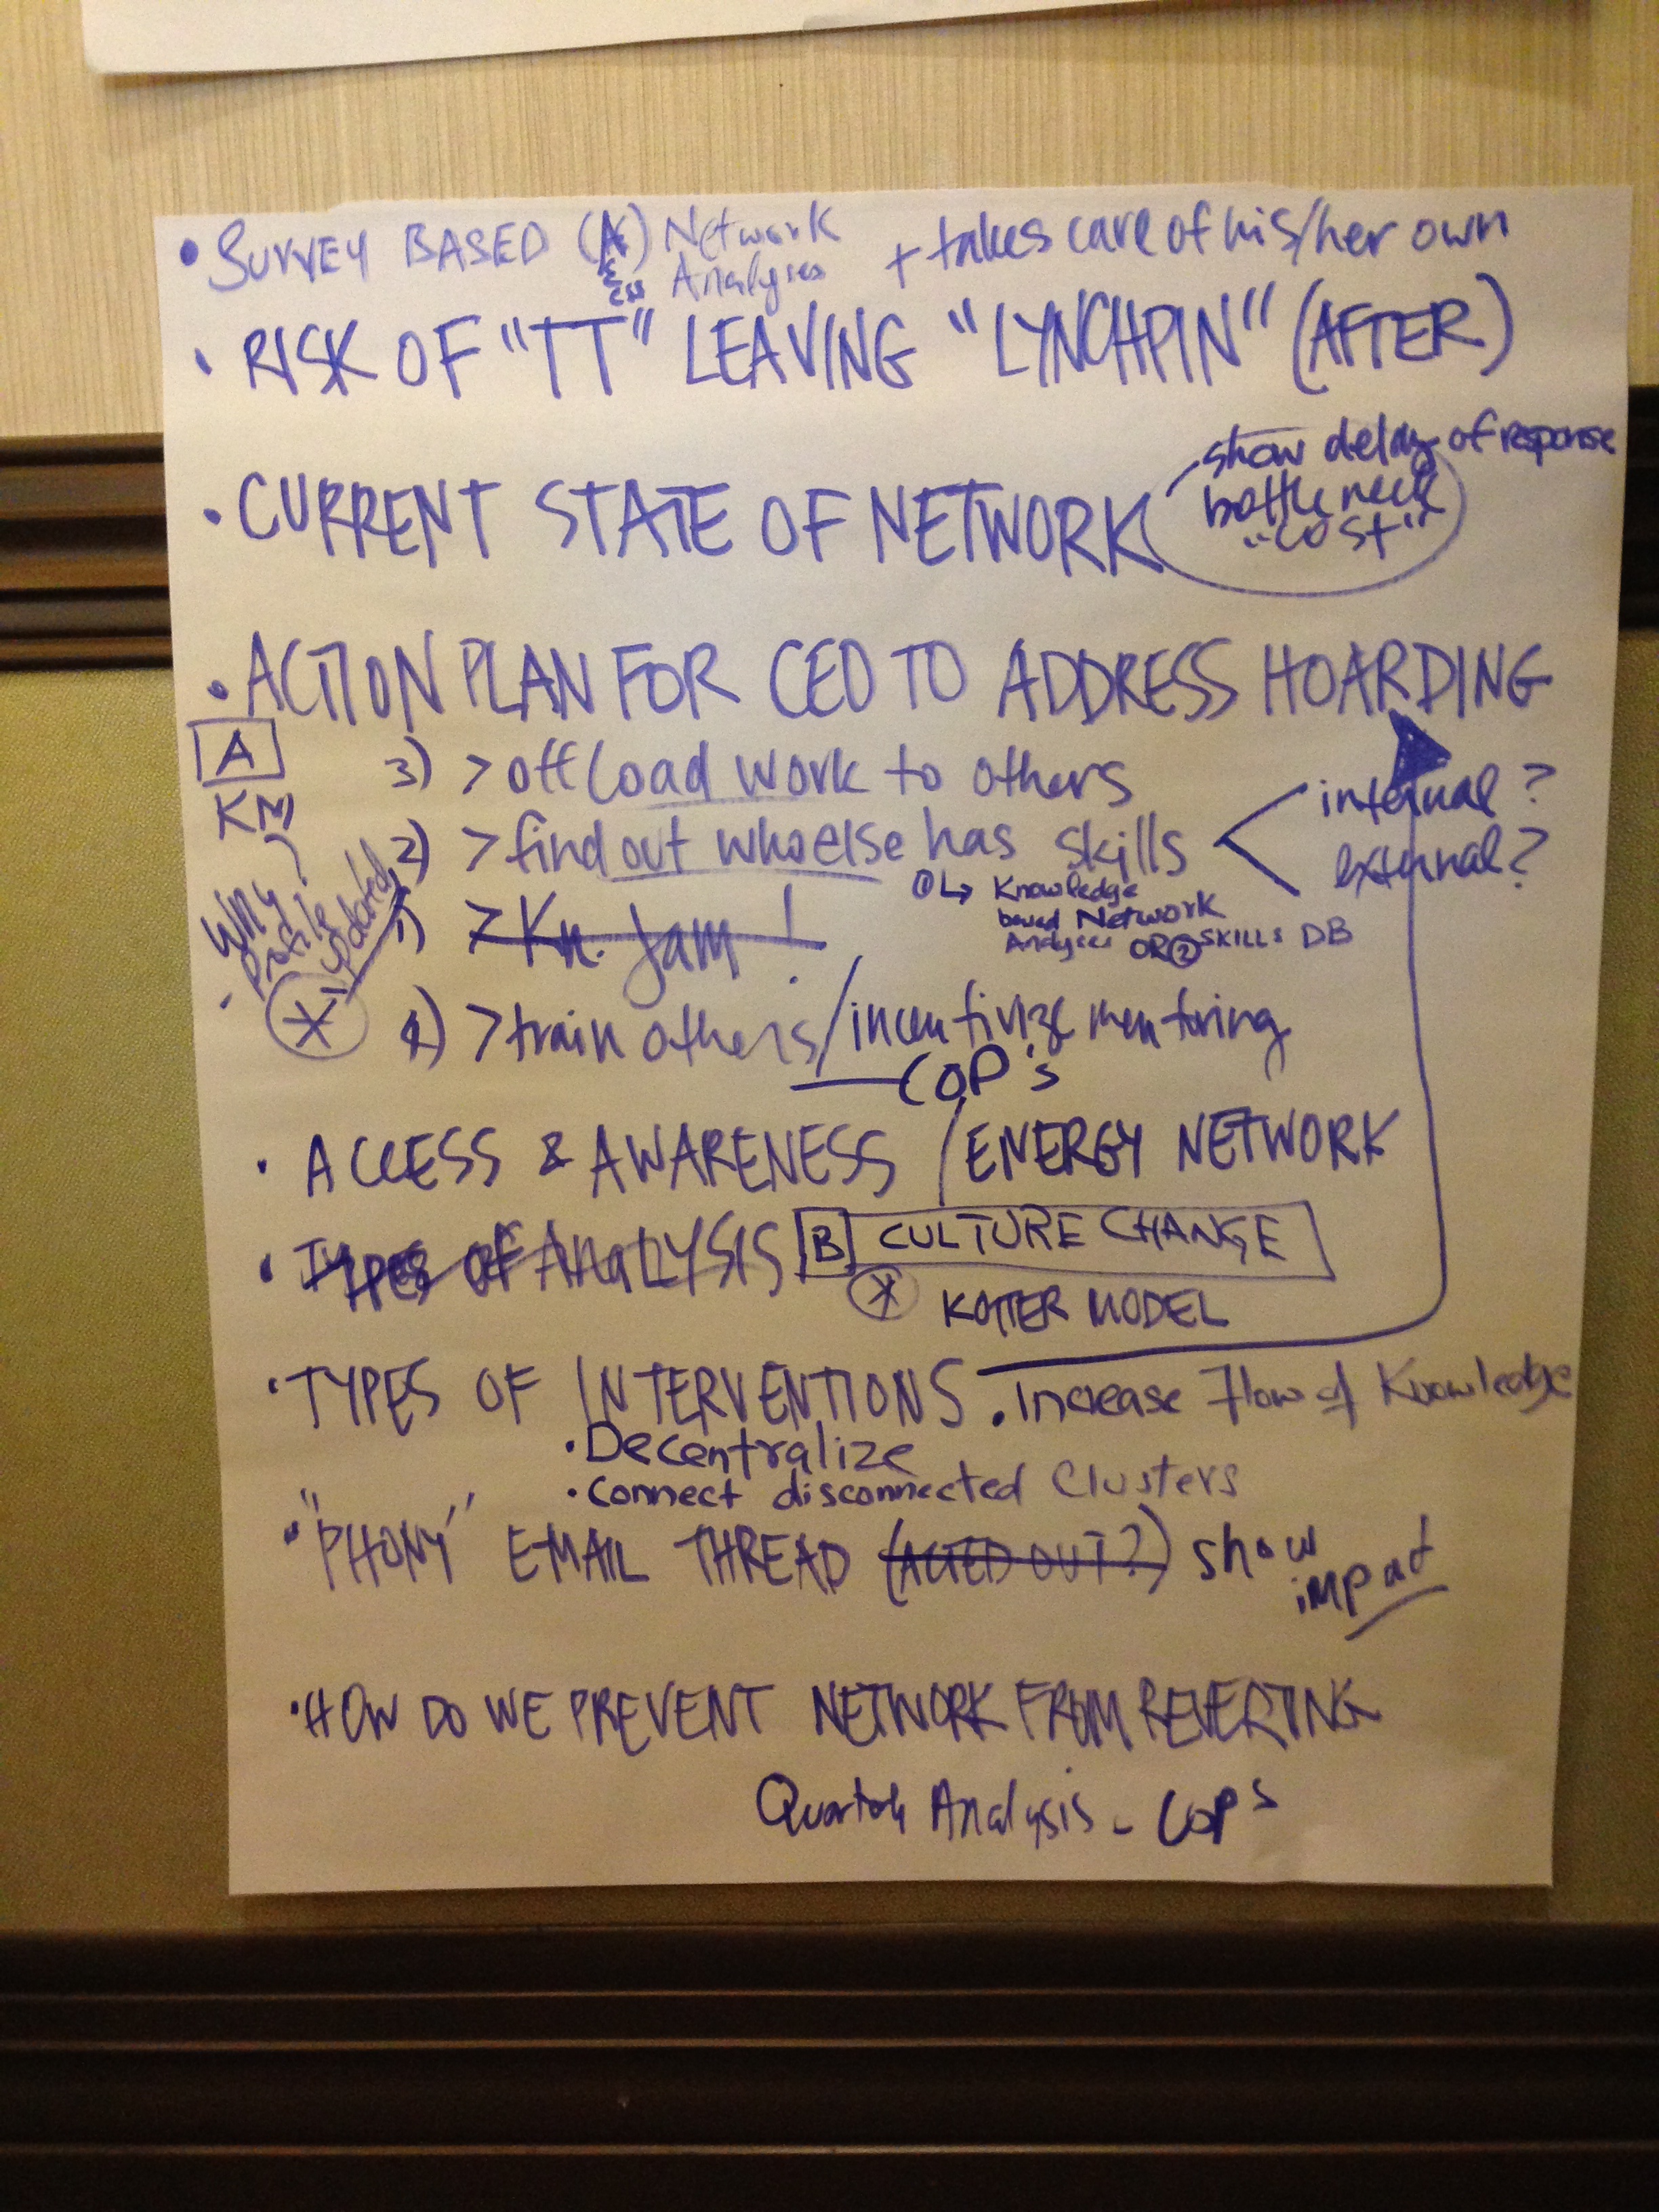 • SURVEY BASED (A) Network Analysis + takes care of his/her own
• RISK OF "TT" LEAVING "LYNCHPIN" (AFTER)
• CURRENT STATE OF NETWORK
show delay of response
bottleneck
"cost"
• ACTION PLAN FOR CEO TO ADDRESS HOARDING
A
KM
Why
Profile
updated
3) > offload work to others
2) > find out who else has skills
internal?
external?
① ↳ Knowledge
based Network
Analysis OR ② SKILLS DB
1) > Kn. Jam!
4) > train others/incentivize mentoring
— COP's
• ACCESS & AWARENESS / ENERGY NETWORK
• TYPES OF ANALYSIS
B CULTURE CHANGE
KOTTER MODEL
• TYPES OF INTERVENTIONS • Increase Flow of Knowledge
• Decentralize
• Connect disconnected Clusters
• "PHONY" EMAIL THREAD (ACTED OUT?) show
impact
• HOW DO WE PREVENT NETWORK FROM REVERTING
Quarterly Analysis - COPs